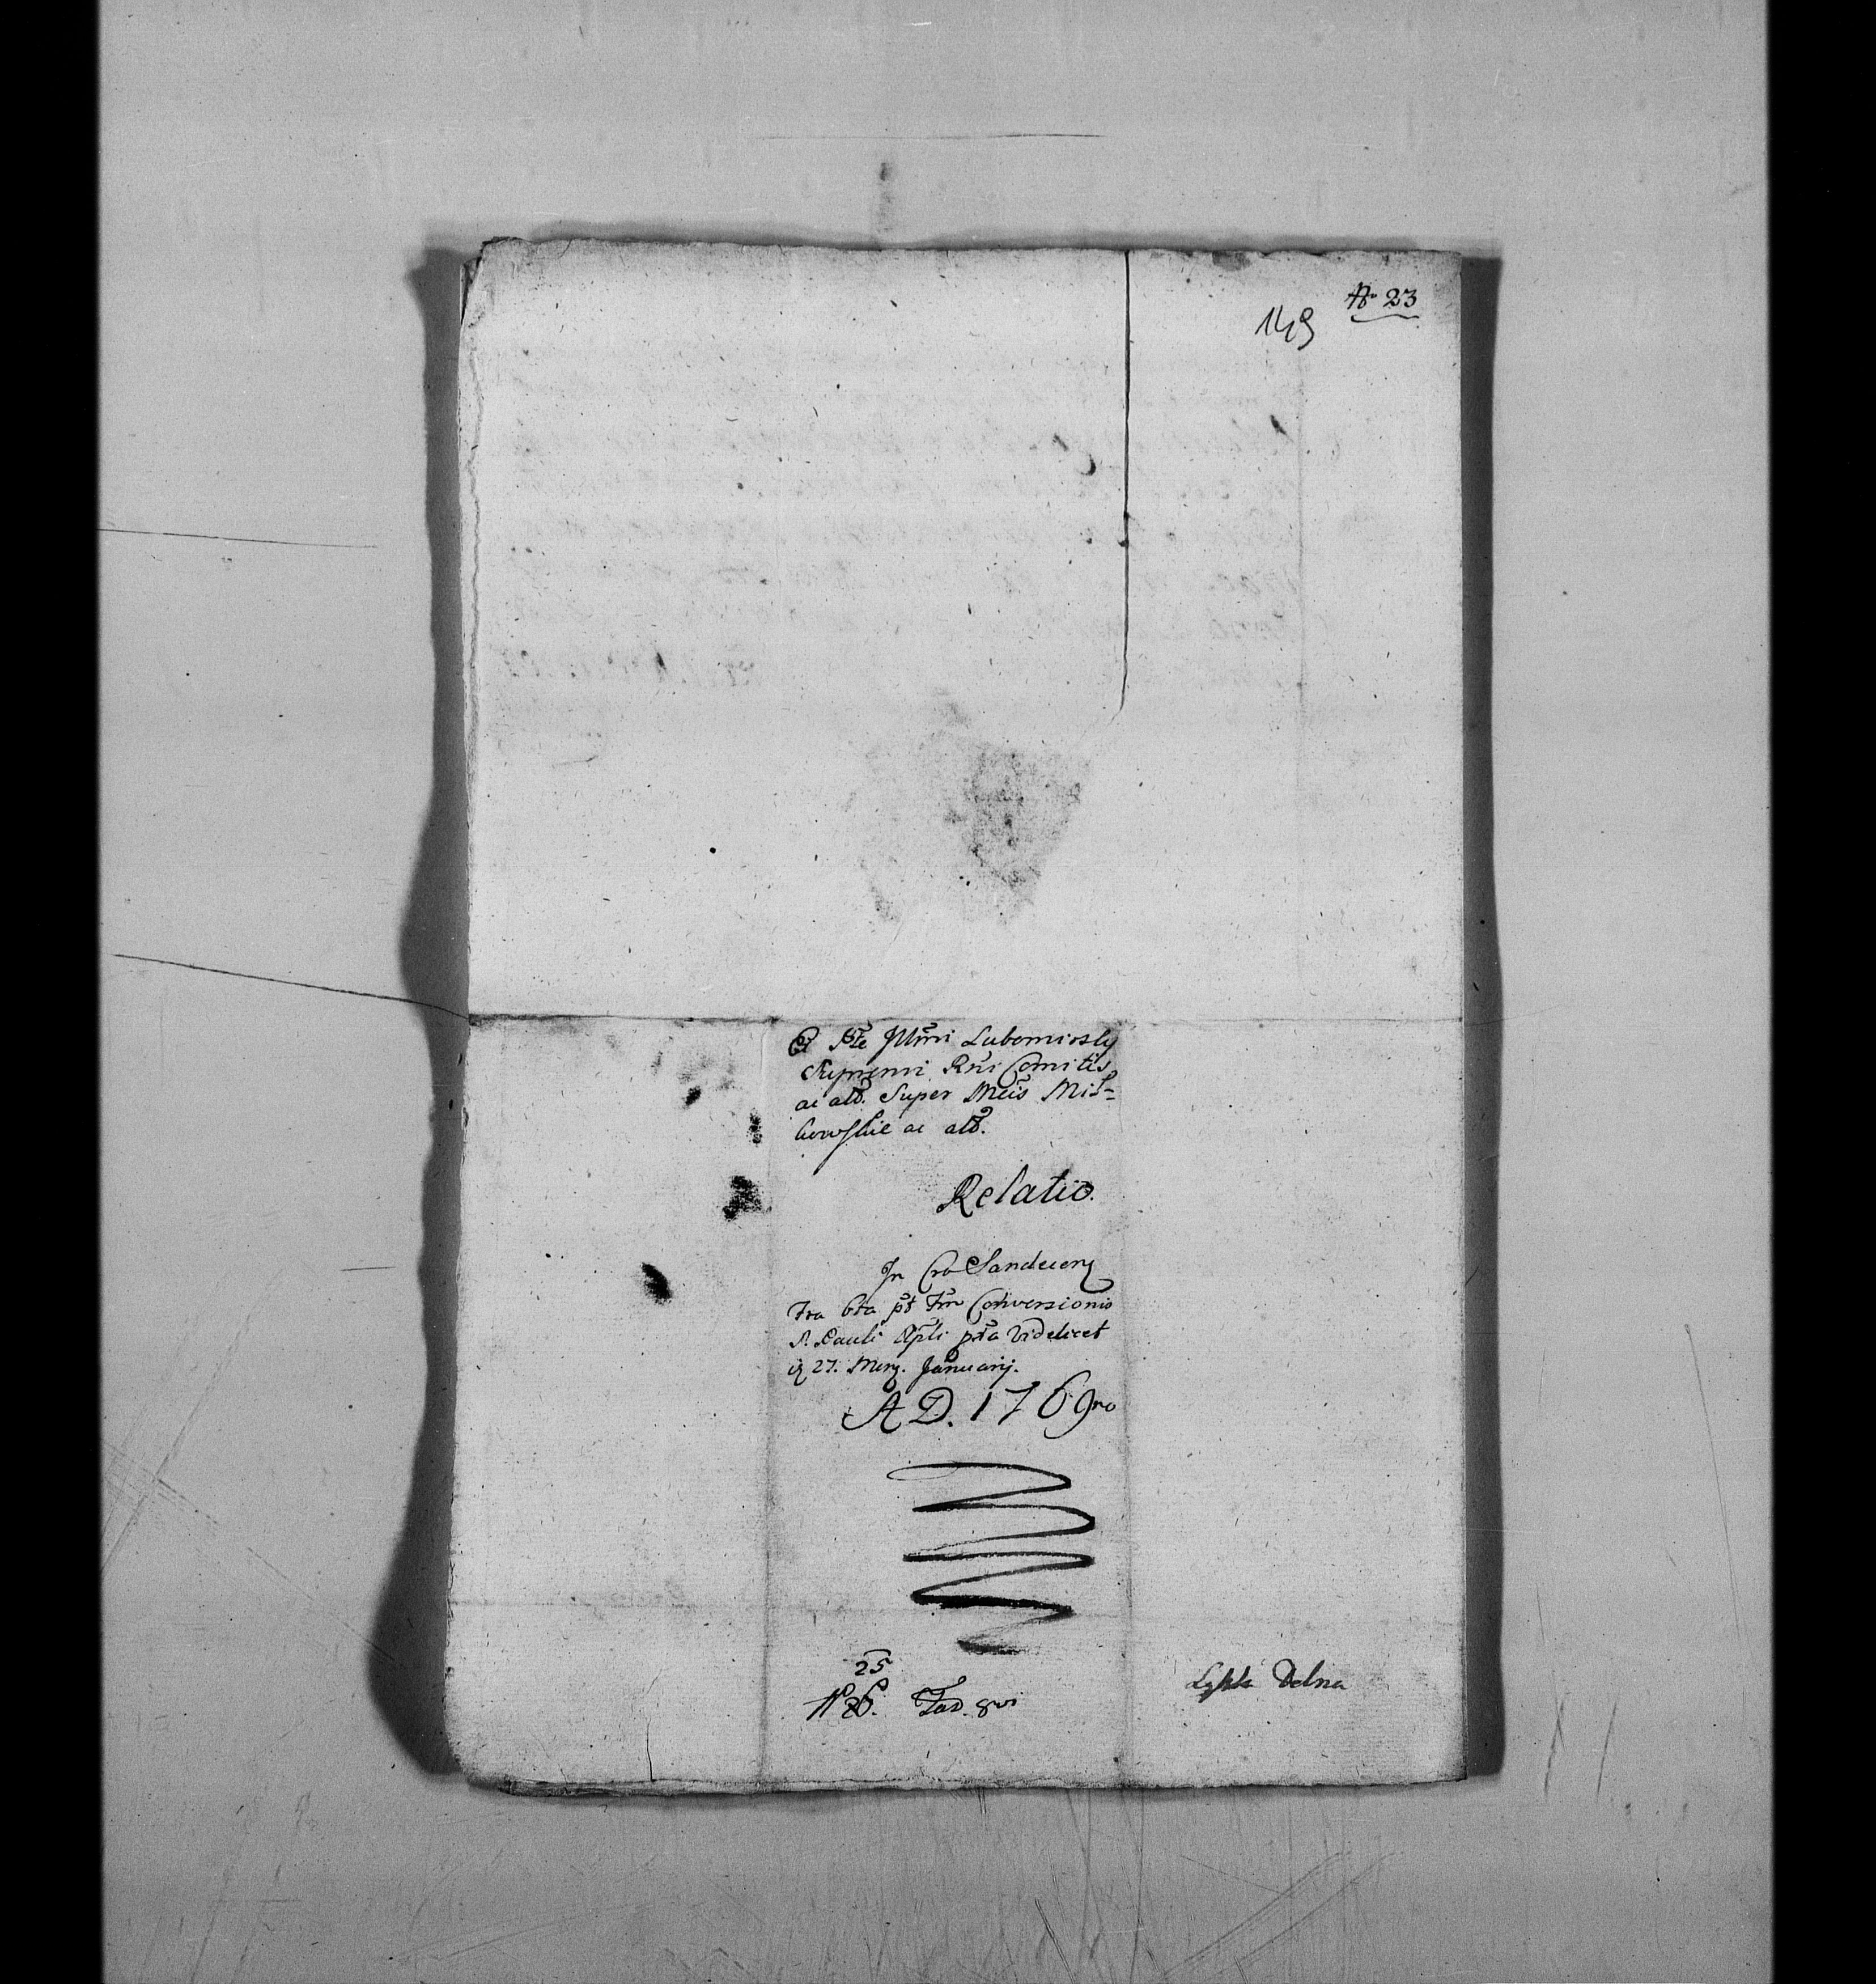 No 23
149
Ex Pte Illmi Lubomirsky
Supremi Rni Comitis
ac alt. Super Mcis Mil=
kowskie ac alt.
Relatio.
In Cro Sandecen
Fra 6ta pt Fm Conversionis
S. Pauli Apli pxa Videlicet
27. Mens. Januarij.
A D. 1769no
25
No 26. Fas. 8vi
Delna